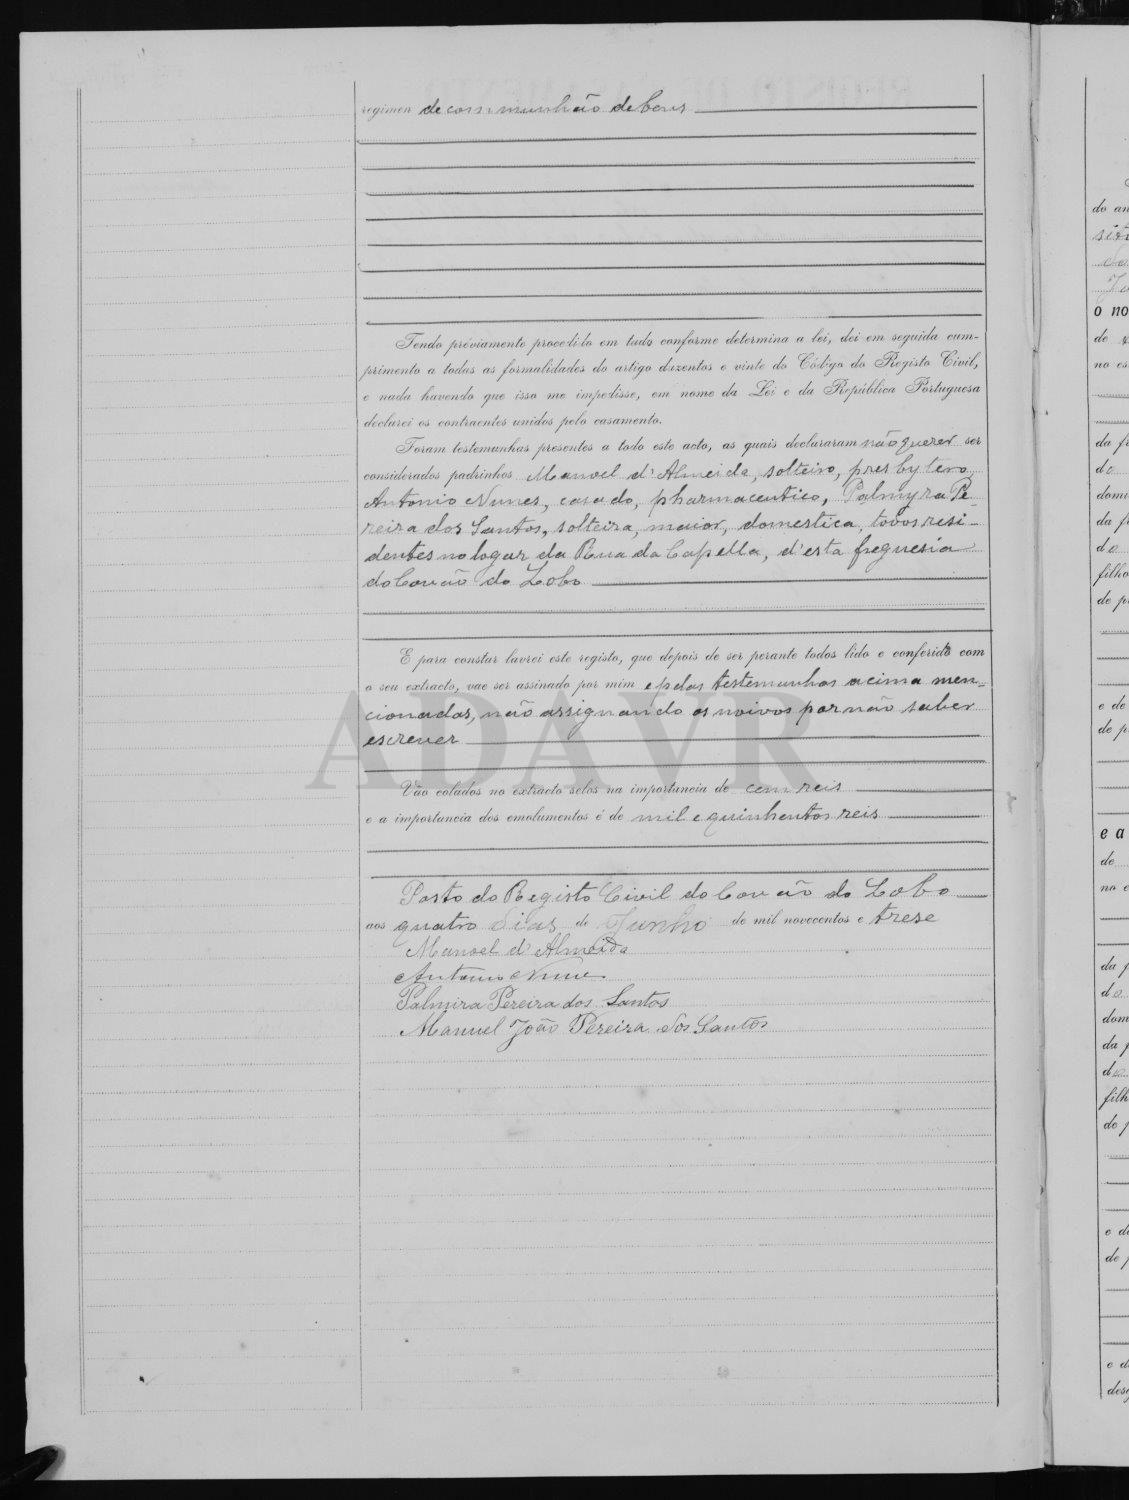 regimen de communhão de bens
Tendo préviamente procedido em tudo conforme determina a lei, dei em seguida cum-
primento a todas as formalidades do artigo duzentos e vinte do Código do Registo Civil,
e nada havendo que isso me impedisse, em nome da Lei e da República Portuguesa
declarei os contraentes unidos pelo casamento.
Foram testemunhas presentes a todo este acto, as quais declararam não querer ser
considerados padrinhos Manoel d'Almeida, solteiro, presbytero,
Antonio Nunes, casado, pharmaceutico, Palmyra Pe-
reira dos Santos, solteira, maior, domestica, todos resi-
dentes no logar da Rua da Capella, d'esta freguesia
do Covão do Lobo
E para constar lavrei este registo, que depois de ser perante todos lido e conferido com
o seu extracto, vae ser assinado por mim e pelas testemunhas acima men-
cionadas, não assignando os noivos por não saber
escrever
ADAVR
Vão colados no extracto selos na importancia de cem reis
e a importancia dos emolumentos é de mil e quinhentos reis
Posto do Registo Civil do Covão do Lobo
aos quatro dias de Junho de mil novecentos e trese
Manoel d'Almeida
Antonio Nunes
Palmira Pereira dos Santos
Manuel João Pereira dos Santos
do an
o no
de
no es
da f
do
domi
da f
do
filho
de p
e de
de p
e a
de
no e
da p
do
dom
da p
do
filh
de p
e d
de p
e d
desq